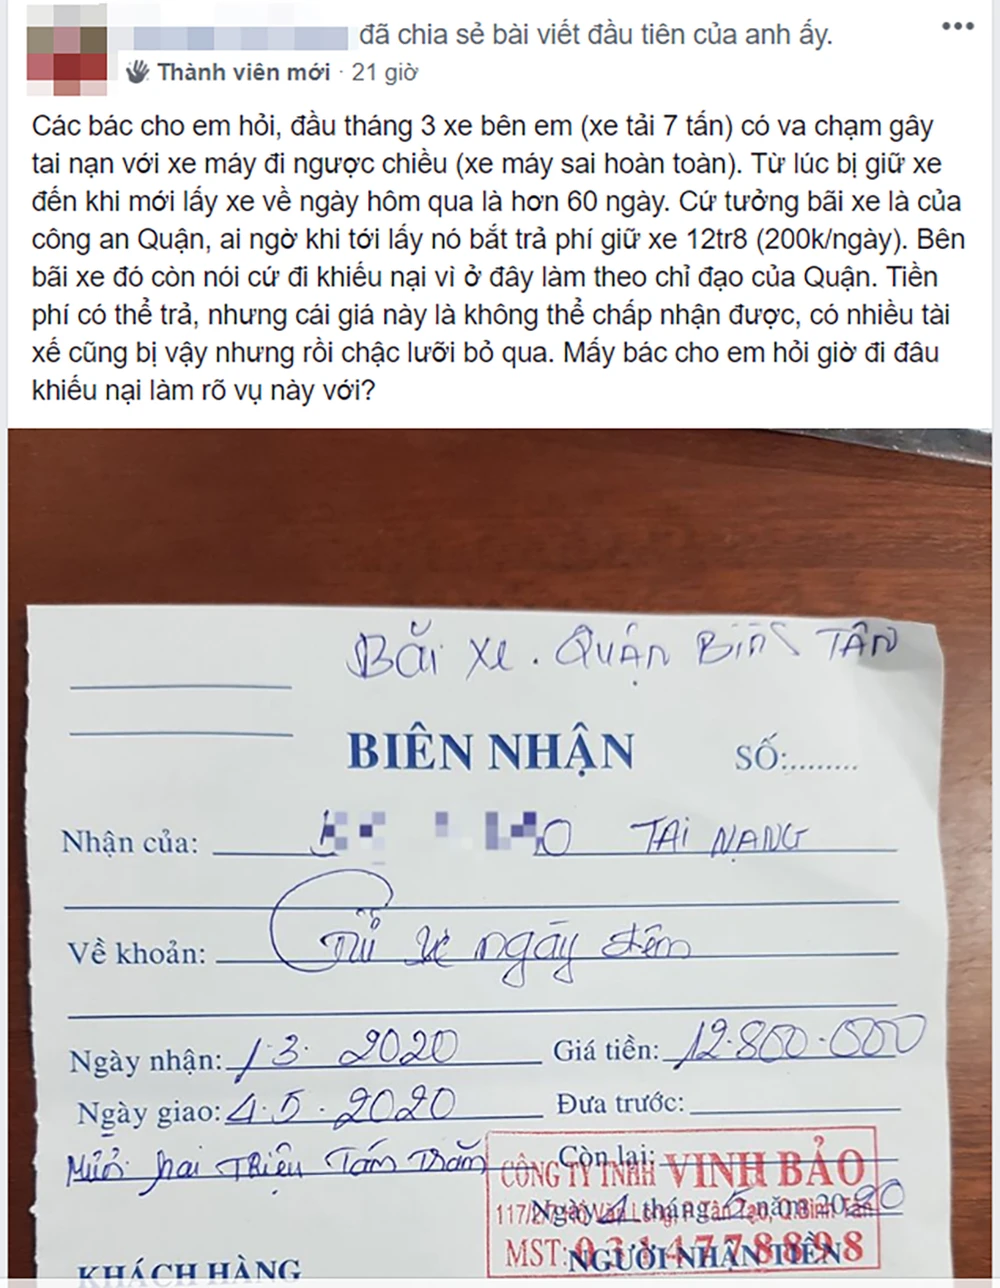 đã chia sẻ bài viết đầu tiên của anh ấy.
Thành viên mới · 21 giờ
Các bác cho em hỏi, đầu tháng 3 xe bên em (xe tải 7 tấn) có va chạm gây
tai nạn với xe máy đi ngược chiều (xe máy sai hoàn toàn). Từ lúc bị giữ xe
đến khi mới lấy xe về ngày hôm qua là hơn 60 ngày. Cứ tưởng bãi xe là của
công an Quận, ai ngờ khi tới lấy nó bắt trả phí giữ xe 12tr8 (200k/ngày). Bên
bãi xe đó còn nói cứ đi khiếu nại vì ở đây làm theo chỉ đạo của Quận. Tiền
phí có thể trả, nhưng cái giá này là không thể chấp nhận được, có nhiều tài
xế cũng bị vậy nhưng rồi chậc lưỡi bỏ qua. Mấy bác cho em hỏi giờ đi đâu
khiếu nại làm rõ vụ này với?
Bãi xe. QUẬN BÌNH TÂN
BIÊN NHẬN SỐ:.........
Nhận của: TAi NẠNG
Về khoản: Giữ xe ngày đêm
Ngày nhận: 1·3· 2020 Giá tiền: 12.800.000
Ngày giao: 4·5·2020 Đưa trước:
Mười hai Triệu Tám Trăm Còn lại:
CÔNG TY TNHH VINH BẢO
Ngày 4 tháng 5 năm 2020
P.Tân Tạo, Q.Bình Tân
MST: 0314778898
KHÁCH HÀNG NGƯỜI NHẬN TIỀN